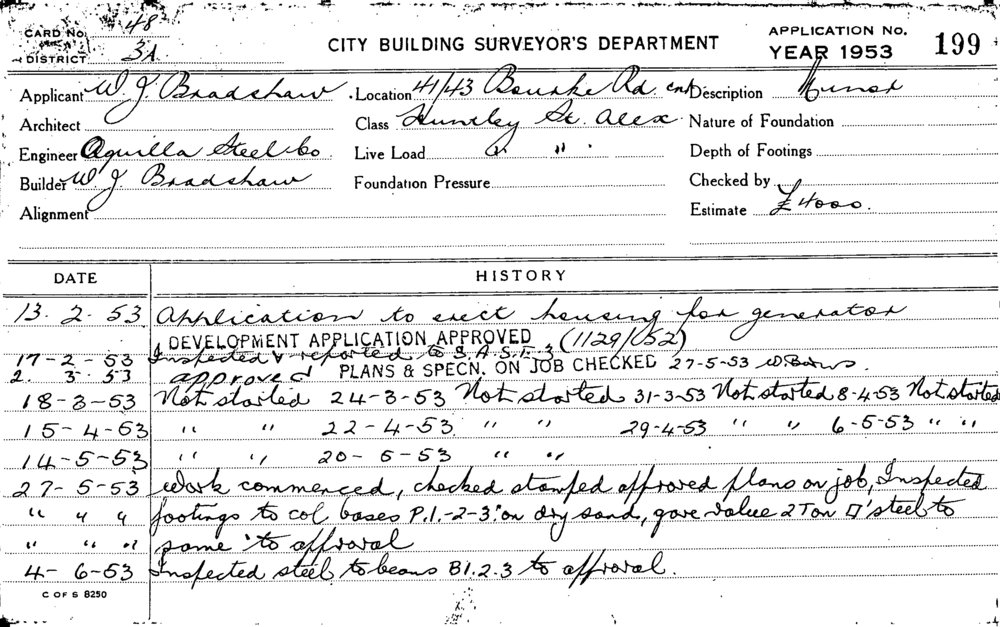 CARD No. 48
DISTRICT 3A
CITY BUILDING SURVEYOR'S DEPARTMENT
APPLICATION No.
YEAR 1953 199
Applicant W. J. Bradshaw Location 41/43 Bourke Rd cnr Description Minor
Architect Class Huntley St. Alex Nature of Foundation
Engineer Aquilla Steel Co Live Load " " Depth of Footings
Builder W J Bradshaw Foundation Pressure Checked by
Alignment Estimate £4000.
DATE HISTORY
13. 2. 53 Application to erect housing for generator
DEVELOPMENT APPLICATION APPROVED (1129/052)
17-2-53 Inspected & reported to
2. 3. 53 approved PLANS & SPECN. ON JOB CHECKED 27-5-53
18-3-53 Not started 24-3-53 Not started 31-3-53 Not started 8-4-53 Not started
15-4-53 " " 22-4-53 " " 29-4-53 " " 6-5-53 " "
14-5-53 " " 20-5-53 " "
27-5-53 Work commenced, checked stamped approved plans on job, Inspected
" " " footings to col bases P.1.-2-3. on dry sand, gave value 2 Ton □' steel to
" " " same to approval
4-6-53 Inspected steel to beams B1.2.3 to approval.
C OF S 8250